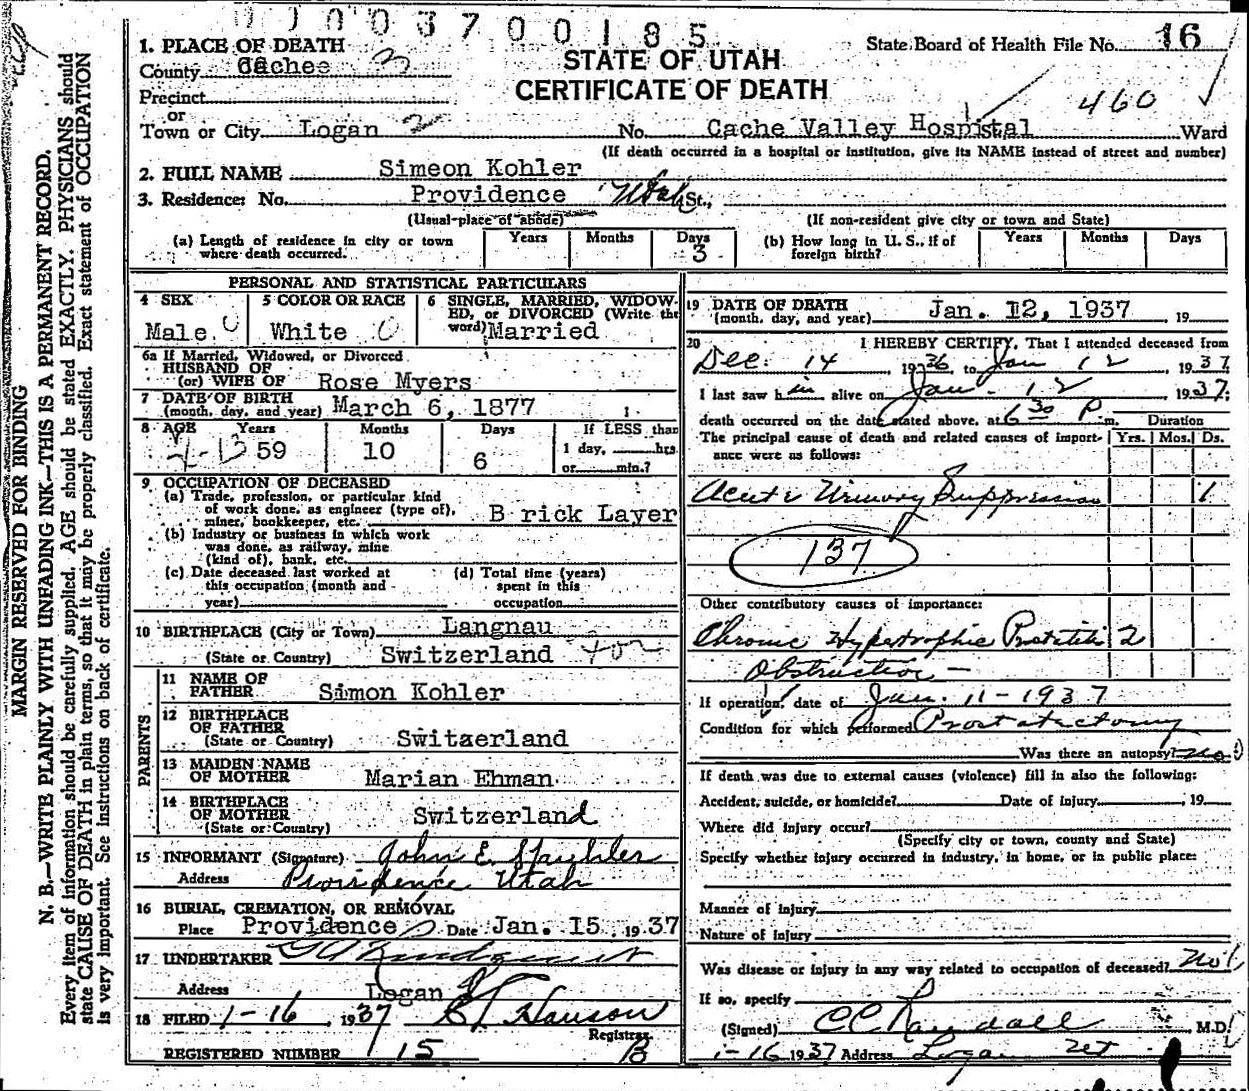 0003700185
1. PLACE OF DEATH
STATE OF UTAH
CERTIFICATE OF DEATH
State Board of Health File No. 16
County Cache 3
Precinct
or
460
Town or City Logan 2 No. Cache Valley Hospistal Ward
(If death occurred in a hospital or institution, give its NAME instead of street and number)
2. FULL NAME Simeon Kohler
3. Residence: No. Providence Utah St.,
(Usual place of abode) (If non-resident give city or town and State)
(a) Length of residence in city or town where death occurred. Years Months Days 3 (b) How long in U. S., if of foreign birth? Years Months Days
PERSONAL AND STATISTICAL PARTICULARS
4 SEX 5 COLOR OR RACE 6 SINGLE, MARRIED, WIDOW-
ED, or DIVORCED (Write the
Male White word) Married
6a If Married, Widowed, or Divorced
HUSBAND OF
(or) WIFE OF Rose Myers
7 DATE OF BIRTH
(month, day, and year) March 6, 1877
8 AGE Years Months Days If LESS than
59 10 6 1 day, hrs
or min.?
9 OCCUPATION OF DECEASED
(a) Trade, profession, or particular kind
of work done, as engineer (type of),
miner, bookkeeper, etc. B rick Layer
(b) Industry or business in which work
was done, as railway, mine
(kind of), bank, etc.
(c) Date deceased last worked at
this occupation (month and
year)
(d) Total time (years)
spent in this
occupation
10 BIRTHPLACE (City or Town) Langnau
(State or Country) Switzerland
PARENTS
11 NAME OF
FATHER Simon Kohler
12 BIRTHPLACE
OF FATHER
(State or Country) Switzerland
13 MAIDEN NAME
OF MOTHER Marian Ehman
14 BIRTHPLACE
OF MOTHER
(State or Country) Switzerland
15 INFORMANT (Signature) John E.
Address Providence Utah
16 BURIAL, CREMATION, OR REMOVAL
Place Providence Date Jan. 15, 1937
17 UNDERTAKER
Address Logan
18 FILED 1-16, 1937 Hanson
Registrar
REGISTERED NUMBER 15
19 DATE OF DEATH
(month, day, and year) Jan. 12, 1937 , 19
20 I HEREBY CERTIFY, That I attended deceased from
Dec. 14, 1936, to Jan 12, 1937
I last saw him alive on Jan. 12, 1937;
death occurred on the date stated above, at 6 30 P. m. Duration
The principal cause of death and related causes of import-
ance were as follows: Yrs. Mos. Ds.
Acute Urinary Suppression 1
137
Other contributory causes of importance:
Chronic Hypertrophic Prostatitis 2
Obstruction —
If operation, date of Jan. 11-1937
Condition for which performed Prostatectomy
Was there an autopsy? no
If death was due to external causes (violence) fill in also the following:
Accident, suicide, or homicide? Date of injury , 19
Where did injury occur?
(Specify city or town, county and State)
Specify whether injury occurred in industry, in home, or in public place:
Manner of injury
Nature of injury
Was disease or injury in any way related to occupation of deceased? No
If so, specify
(Signed) CC Randall M.D.
1-16 1937 Address Logan Ut
MARGIN RESERVED FOR BINDING
N. B.—WRITE PLAINLY WITH UNFADING INK—THIS IS A PERMANENT RECORD.
Every item of information should be carefully supplied. AGE should be stated EXACTLY. PHYSICIANS should
state CAUSE OF DEATH in plain terms, so that it may be properly classified. Exact statement of OCCUPATION
is very important. See instructions on back of certificate.